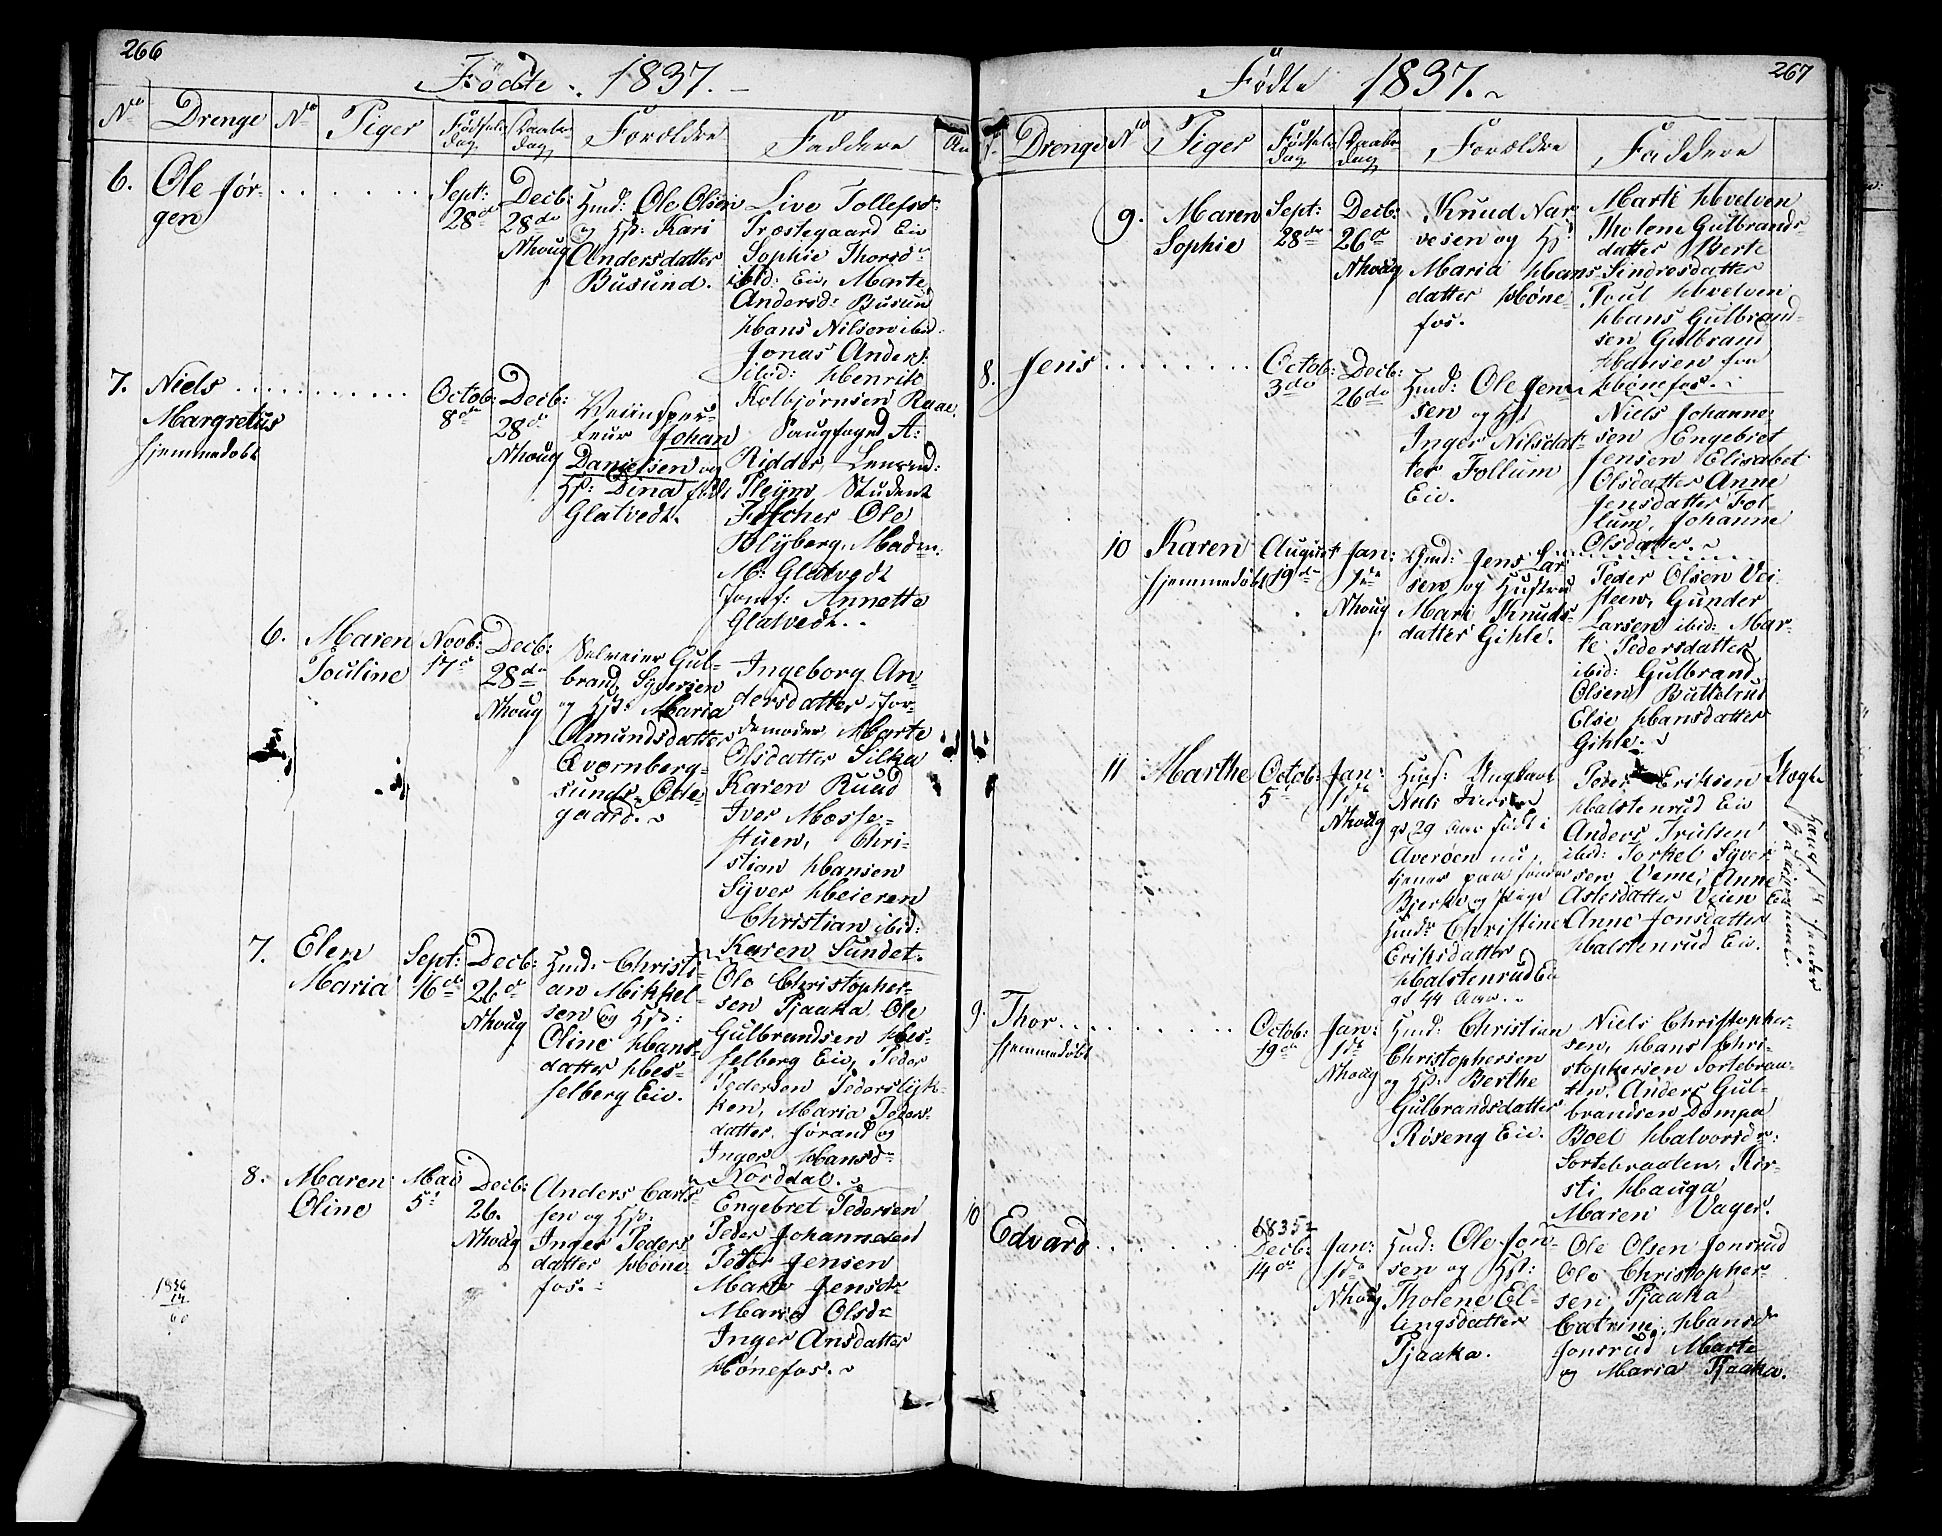 266
Födte. 1837.
No Drenge No Piger Födsels dag Daabs dag Forældre Faddere An
6. Ole Jör-
gen
Sept:
28de
Decb:
28de
Nhoug
Gmd: Ole Olsen
og Hst: Kari
Andersdatter
Busund.
Live Tollefsr
Træstegaard Eie
Sophie Thorsdr
ibid: Eie, Marte
Andersd: Busund
Hans Nilsen ibid:
Jonas Anders:
ibid: Henrik
Kolbjörnsen Raae.
7. Niels
Margretus
hjemmedöbt
Octob:
8de
Decb:
28de
Nhoug
Veiinspec-
teur Johan
Danielsen og
Hst: Dina födt
Glatvedt.
Saugfoged A:
Ridder, Lensmd:
Fleym, Student
Felcher Ole
Blyberg, Madm:
M: Glatvedt
Jomf: Annette
Glatvedt.
6. Maren
Pouline
Novb:
17de
Decb:
28de
Nhoug
Selveier Gul-
brand Syversen
og Hst: Maria
Amundsdatter
Qvernberg-
sund. Ode-
gaard.
Ingeborg An-
dersdatter, Jor-
demoder, Marte
Olsdatter Silka
Karen Ruud
Iver Mosse-
stuen, Chri-
stian Hansen
Syver Heieren
Christian ibid:
Karen Sundet.
7. Elen
Maria
Sept:
16de
Decb:
26de
Nhoug
Gmd: Christi-
an Mikkel-
sen og Hst:
Oline Hans-
datter Hes-
selberg Eie.
Ole Christopher-
sen Pjaaka, Ole
Gulbrandsen Hes-
selberg Eie, Peder
Pedersen Pederslyk-
ken, Maria Peders-
datter, Jörand og
Inger Hansdr
Norddal.
8. Maren
Oline
Mai
5te
Decb:
26.
Nhoug
Anders Carls-
sen og Hst:
Inger Peders
datter Höne-
fos.
Engebret Pedersen
Peder Johannesen
Peter Jensen
Marte Jensdr
Maria Olsdr
Inger Ansdatter
Hönefos.
1836
14
60
267
Födte 1837.
Drenge No Piger Födsels dag Daabs dag Forældre Faddere
9. Maren
Sophie
Sept:
28de
Decb:
26de
Nhoug
Knud Nar-
vesen og Hst
Maria Hans
datter Höne-
fos.
Marte Hvelven
Tholene Gulbrands
datter Berte
Sindresdatter
Poul Hvelven
Hans Gulbrand-
sen Gulbrand
Hansen fra
Hönefos.
8. Jens
Octob:
3de
Decb:
26de
Gmd: Ole Jen-
sen og Hst
Inger Nilsdat-
ter Follum
Eie.
Niels Johanne-
sen Engebret
Jensen Elisabet
Olsdatter Anne
Jensdatter Fol-
lum, Johanne
Olsdatter.
10 Karen
hjemmedöbt
August
19de
Jan:
1ste
Nhoug
Gmd: Jens Lar
sen og Hustru
Mari Knuds-
datter Gihle.
Peder Olsen Vei-
steen, Gunder
Larsen ibid: Mar-
te Pedersdatter
ibid: Gulbrand
Olsen Buttelrud
Else Hansdatter
Gihle.
11 Marthe
Octob:
5te
Jan:
1ste
Nhoug
Huusf: Ungkarl
Niels
gl 29 Aar födt i
Averöen nu
tjener paa söndre
Bjerke og Pige
Christine
Eriksdatter
Halstenrud Eie
gl 44 Aar.
Peder Eriksen
Halstenrud Eie
Anders Trulsen
ibid: Torkel Syver
sen Veme, Anne
Aslesdatter Veien Eie
Anne Jonsdatter
Halstenrud Eie.
Uægte
9. Thor
hjemmedöbt
Octob:
19de
Jan:
1ste
Nhoug
Gmd: Christian
Christophersen
og Hst: Berthe
Gulbrandsdatter
Röseng Eie.
Niels Christopher-
sen, Hans Chri-
stophersen Sortebraa-
ten, Anders Gul-
brandsen Dompa
Boel Halvorsdr:
Sortebraaten, Kir-
sti Hauga
Maren Vager.
10 Edvard
1835
Decb:
14de
Jan:
1ste
Nhoug
Gmd: Ole Jon-
sen og Hst:
Tholene El-
lingsdatter
Pjaaka.
Ole Olsen Jonsrud
Ole Christopher-
sen Pjaaka
Catrine Hansdr
Jonsrud Marte
og Maria Pjaaka.